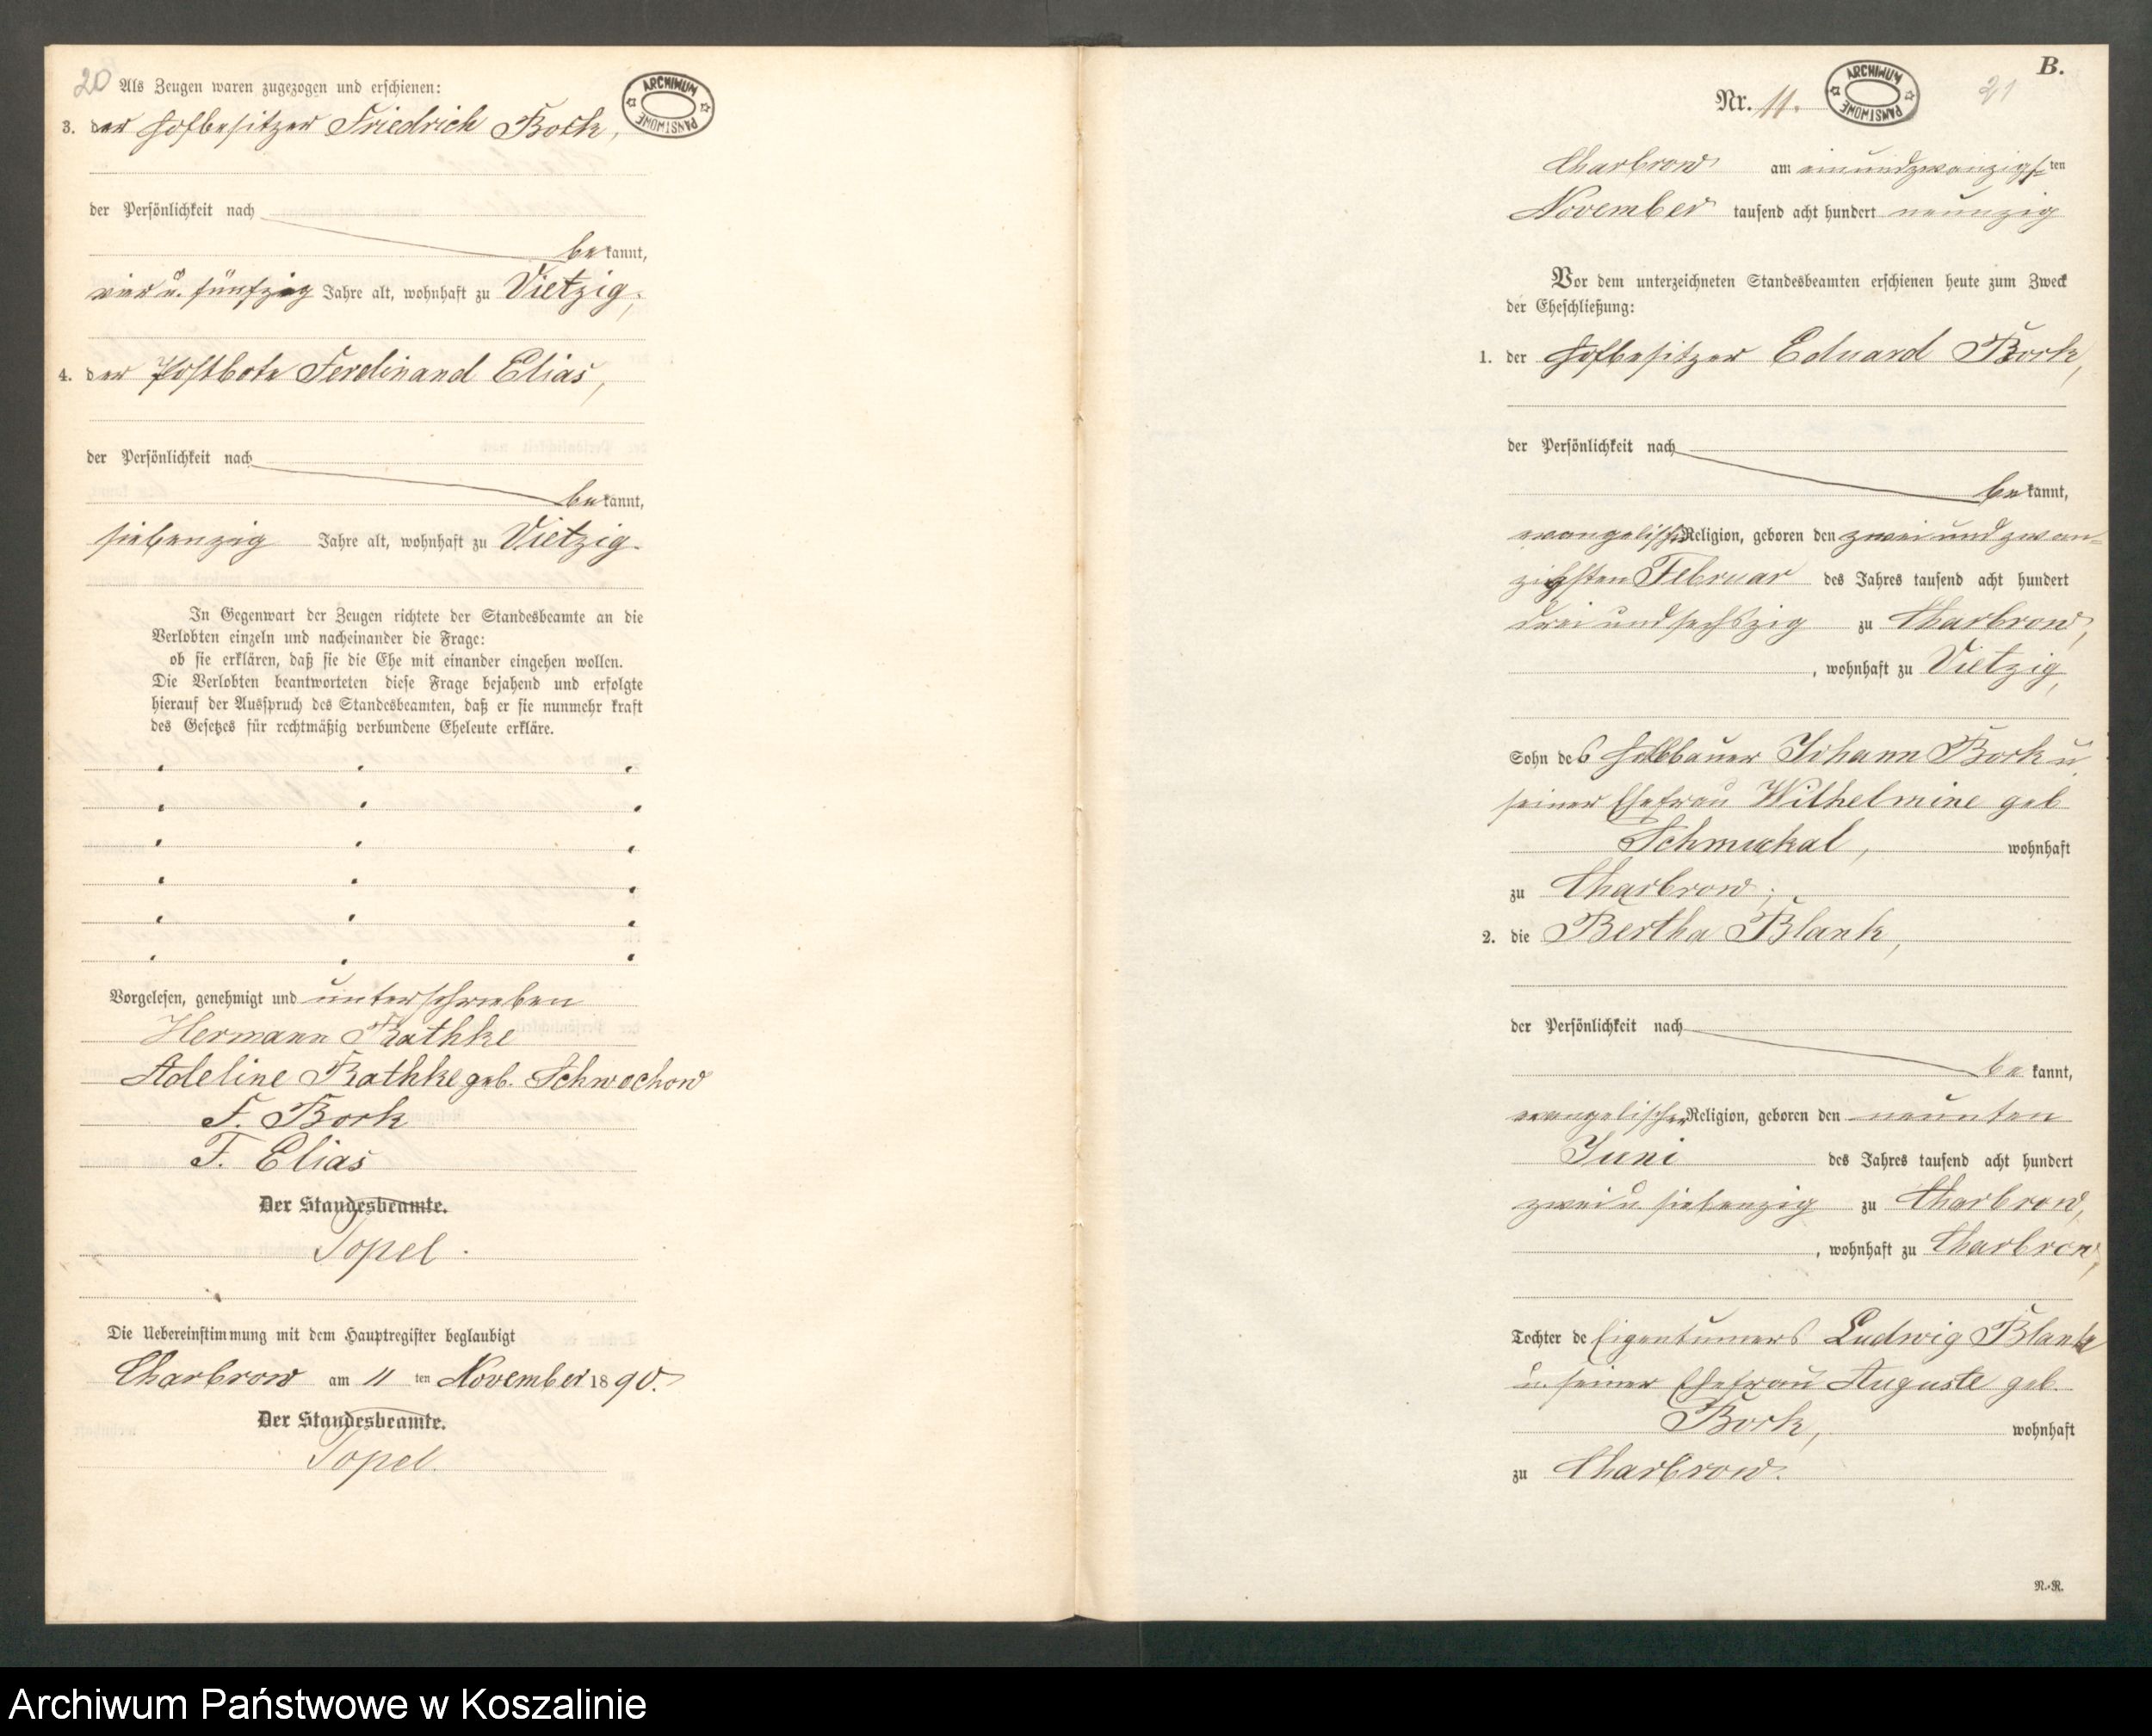 20 Als Zeugen waren zugezogen und erschienen:
ARCHIWUM PAŃSTWOWE
3. der Hofbesitzer Friedrich Bork,
der Persönlichkeit nach
be kannt,
vier u. fünfzig Jahre alt, wohnhaft zu Vietzig,
4. der Postbote Ferdinand Elias,
der Persönlichkeit nach
be kannt,
siebenzig Jahre alt, wohnhaft zu Vietzig.
In Gegenwart der Zeugen richtete der Standesbeamte an die
Verlobten einzeln und nacheinander die Frage:
ob sie erklären, daß sie die Ehe mit einander eingehen wollen.
Die Verlobten beantworteten diese Frage bejahend und erfolgte
hierauf der Ausspruch des Standesbeamten, daß er sie nunmehr kraft
des Gesetzes für rechtmäßig verbundene Eheleute erkläre.
Vorgelesen, genehmigt und unterschrieben
Hermann Rathke
Adeline Rathke geb. Schwochow
F. Bork
F. Elias
Der Standesbeamte.
Topel.
Die Uebereinstimmung mit dem Hauptregister beglaubigt
Charbrow am 11 ten November 18 90.
Der Standesbeamte.
Topel.
B.
Nr. 11.
ARCHIWUM PAŃSTWOWE
21
Charbrow am einundzwanzigs ten
November tausend acht hundert neunzig
Vor dem unterzeichneten Standesbeamten erschienen heute zum Zweck
der Eheschließung:
1. der Hofbesitzer Eduard Bork,
der Persönlichkeit nach
be kannt,
evangelischer Religion, geboren den zwei und zwan=
zigsten Februar des Jahres tausend acht hundert
drei und sechszig zu Charbrow,
, wohnhaft zu Vietzig,
Sohn des Halbbauer Johann Bork u.
seiner Ehefrau Wilhelmine geb
Schmuckal, wohnhaft
zu Charbrow;
2. die Bertha Blank,
der Persönlichkeit nach
be kannt,
evangelischer Religion, geboren den neunten
Juni des Jahres tausend acht hundert
zwei u. siebenzig zu Charbrow,
, wohnhaft zu Charbrow,
Tochter de Eigentümers Ludwig Blank
u. seiner Ehefrau Auguste geb.
Bork, wohnhaft
zu Charbrow.
N.-R.
Archiwum Państwowe w Koszalinie